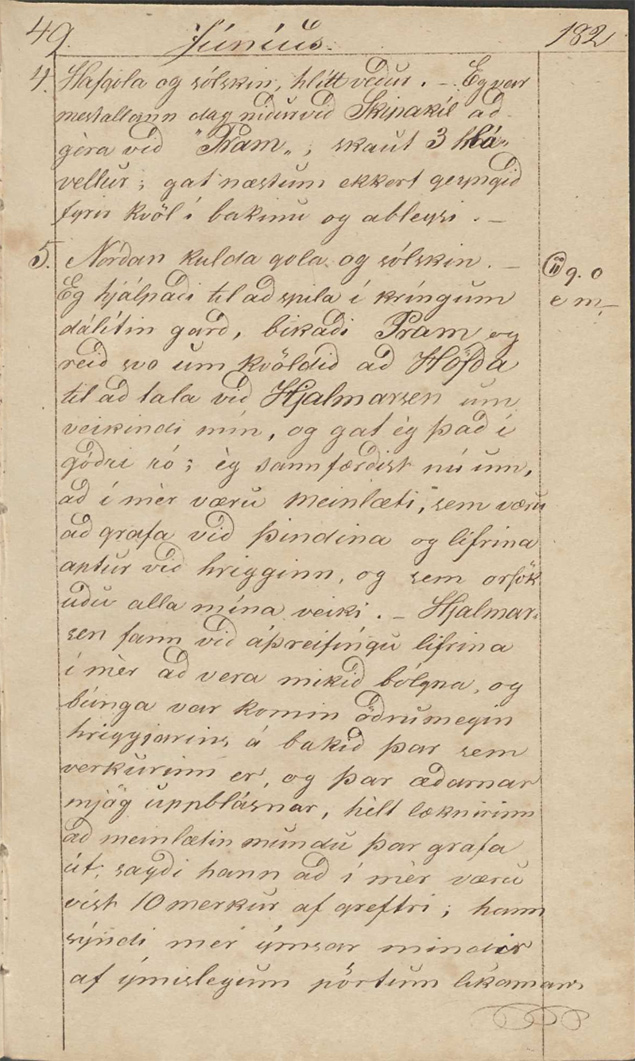 49. Júníus. 182
4. Hafgola og sólskin, hlítt veður. – Eg var
mestallann dag niðurvið Skipakíl að
géra við "Pram„; skaut 3 há„
vellur; gat næstum ekkert geyngið
fyrir kvöl í bakinu og ableysi. –
5. Norðan kulda gola og sólskin. – g. 0
Eg hjálpaði til að spila í kríngum e m –
dálítin garð, bikaði Pram og
reið svo um kvöldið að Höfða
til að tala við Hjalmarsen um
veikindi mín, og gat èg það í
góðri ró; èg sannfærðist nú um,
að í mèr væru meinlæti, sem væru
að grafa við þindina og lifrina
aptur við hrigginn, og sem orsök
uðu alla mína veiki. – Hjalmar„
sen fann við áþreifíngu lifrina
í mèr að vera mikið bólgna, og
búnga var komin öðrumegin
hriggjarins á bakið þar sem
verkurinn er, og þar æðarnar
mjög uppblásnar, hèlt læknirinn
að meinlætin mundu þar grafa
út; sagði hann að í mèr væru
víst 10 merkur af greftri; hann
sýndi mér ýmsar mindir
af ýmislegum pörtum líkamans